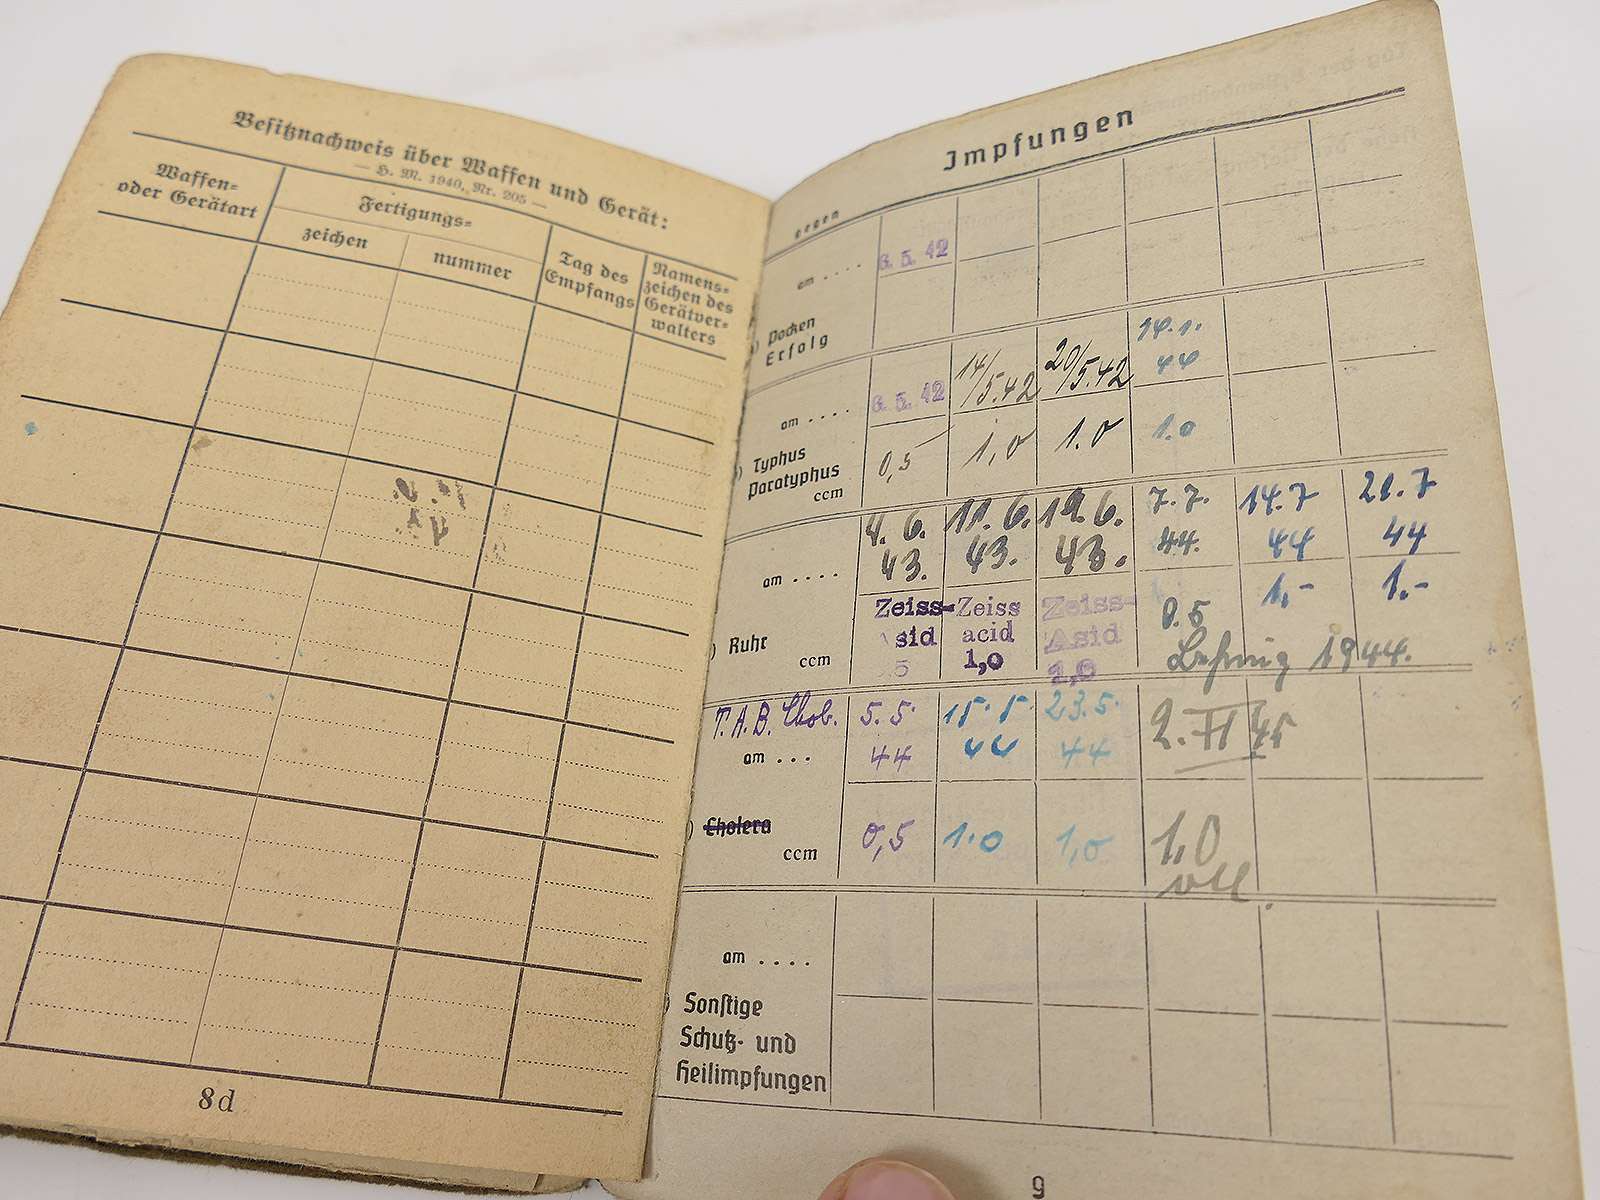 Besitznachweis über Waffen und Gerät:
— H. M. 1940, Nr. 205 —
Waffen-
oder Gerätart
Fertigungs-
zeichen
nummer
Tag des
Empfangs
Namens-
zeichen des
Gerätver-
walters
8d
Impfungen
gegen
am .... 6. 5. 42
) Pocken
Erfolg
am .... 6. 5. 42 14/5.42 20/5.42 14.1. 44
) Typhus
Paratyphus
ccm 0,5 1,0 1.0 1.0
am .... 4. 6. 43. 11. 6. 43. 19. 6. 43. 7.7. 44. 14.7 44 21.7 44
) Ruhr
ccm Zeiss-Asid 5 Zeiss acid 1,0 Zeiss-Asid 1,0 0.5 1,- 1.-
1944.
T.A.B. Chol.
am ... 5.5. 44 15.5. 44 23.5. 44 2. II 45
) Cholera
ccm 0,5 1.0 1,0 1,0
am ....
) Sonstige
Schutz- und
Heilimpfungen
9